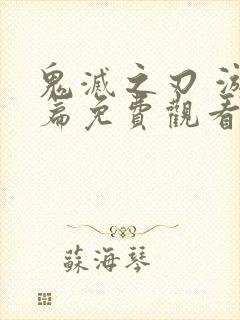 鬼滅之刃 
篇免費觀看
蘇海琴